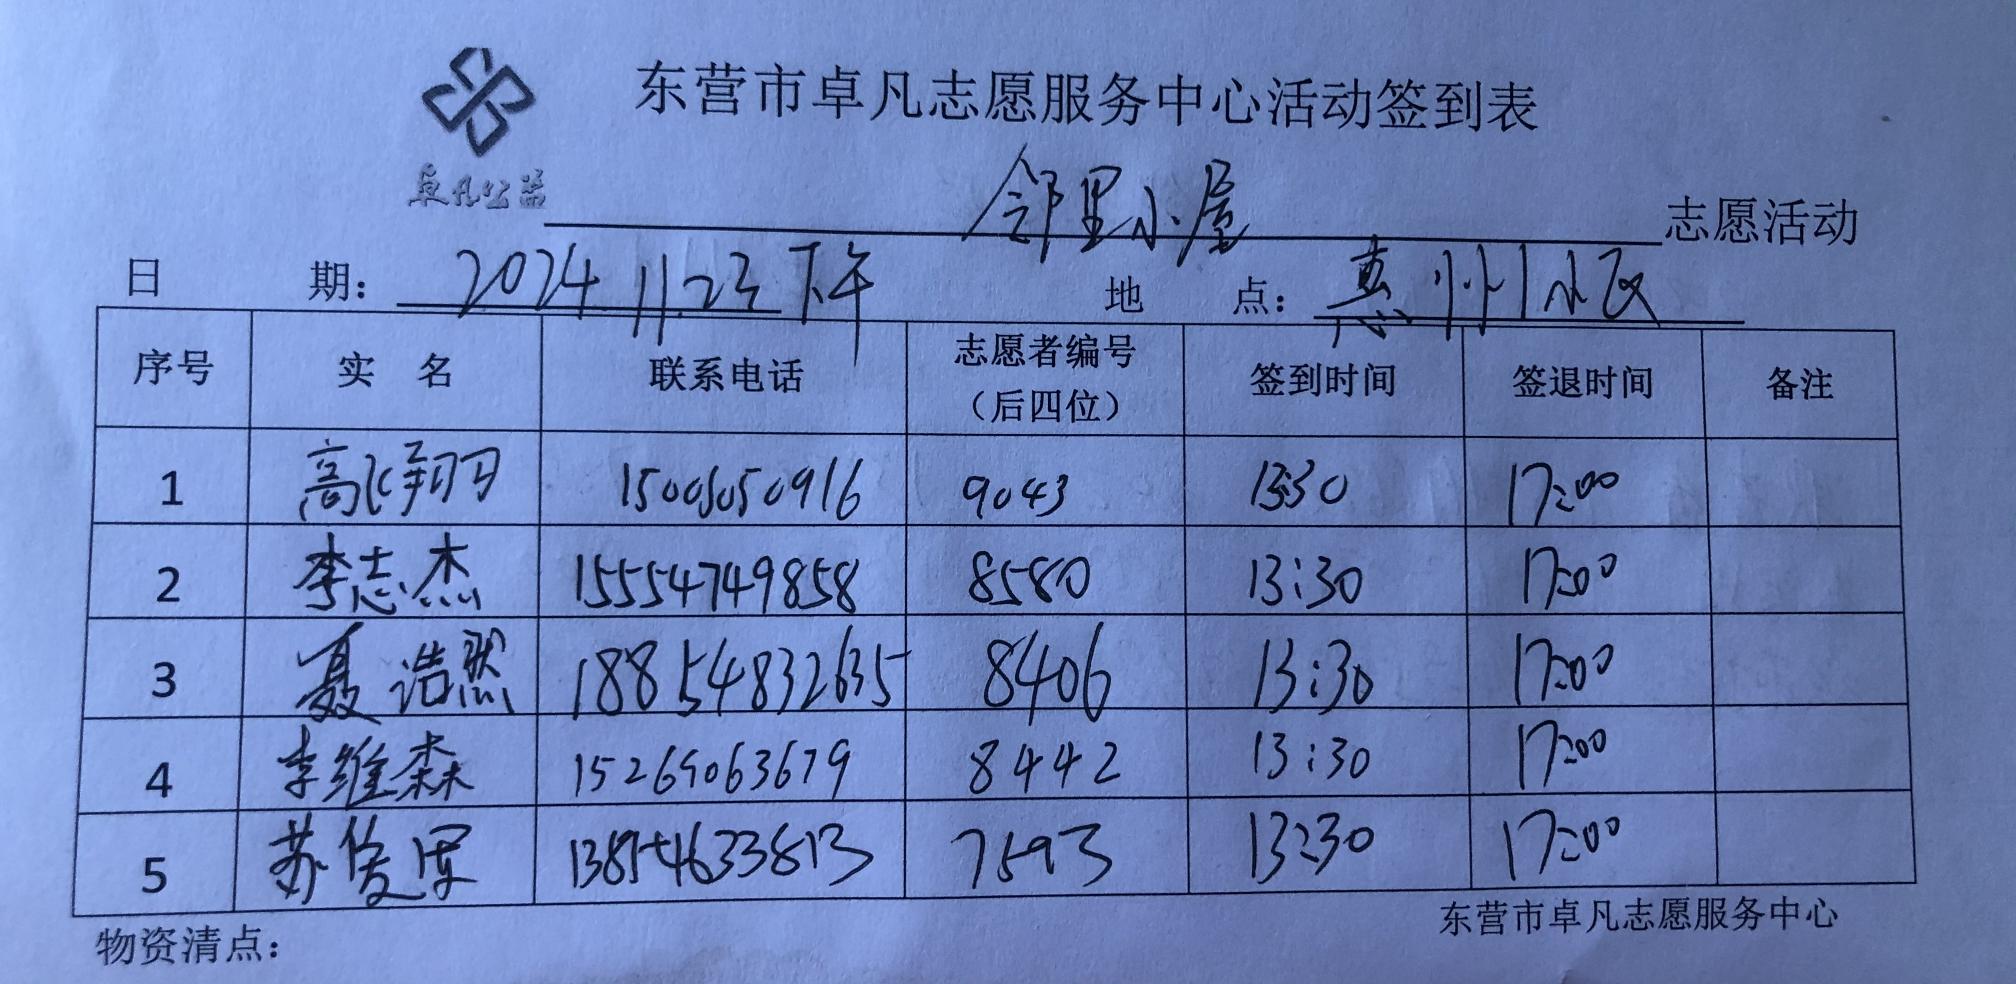 东营市卓凡志愿服务中心活动签到表
卓凡公益
邻里小屋 志愿活动
日 期： 2024.11.23下午 地 点： 惠州小区
序号 实 名 联系电话 志愿者编号（后四位） 签到时间 签退时间 备注
1 高飞翔 15005050916 9043 13:30 17:00
2 李志杰 15554749858 8580 13:30 17:00
3 聂浩然 18854832635 8406 13:30 17:00
4 李维森 15269063679 8442 13:30 17:00
5 苏俊军 13854633813 7593 13:30 17:00
东营市卓凡志愿服务中心
物资清点：